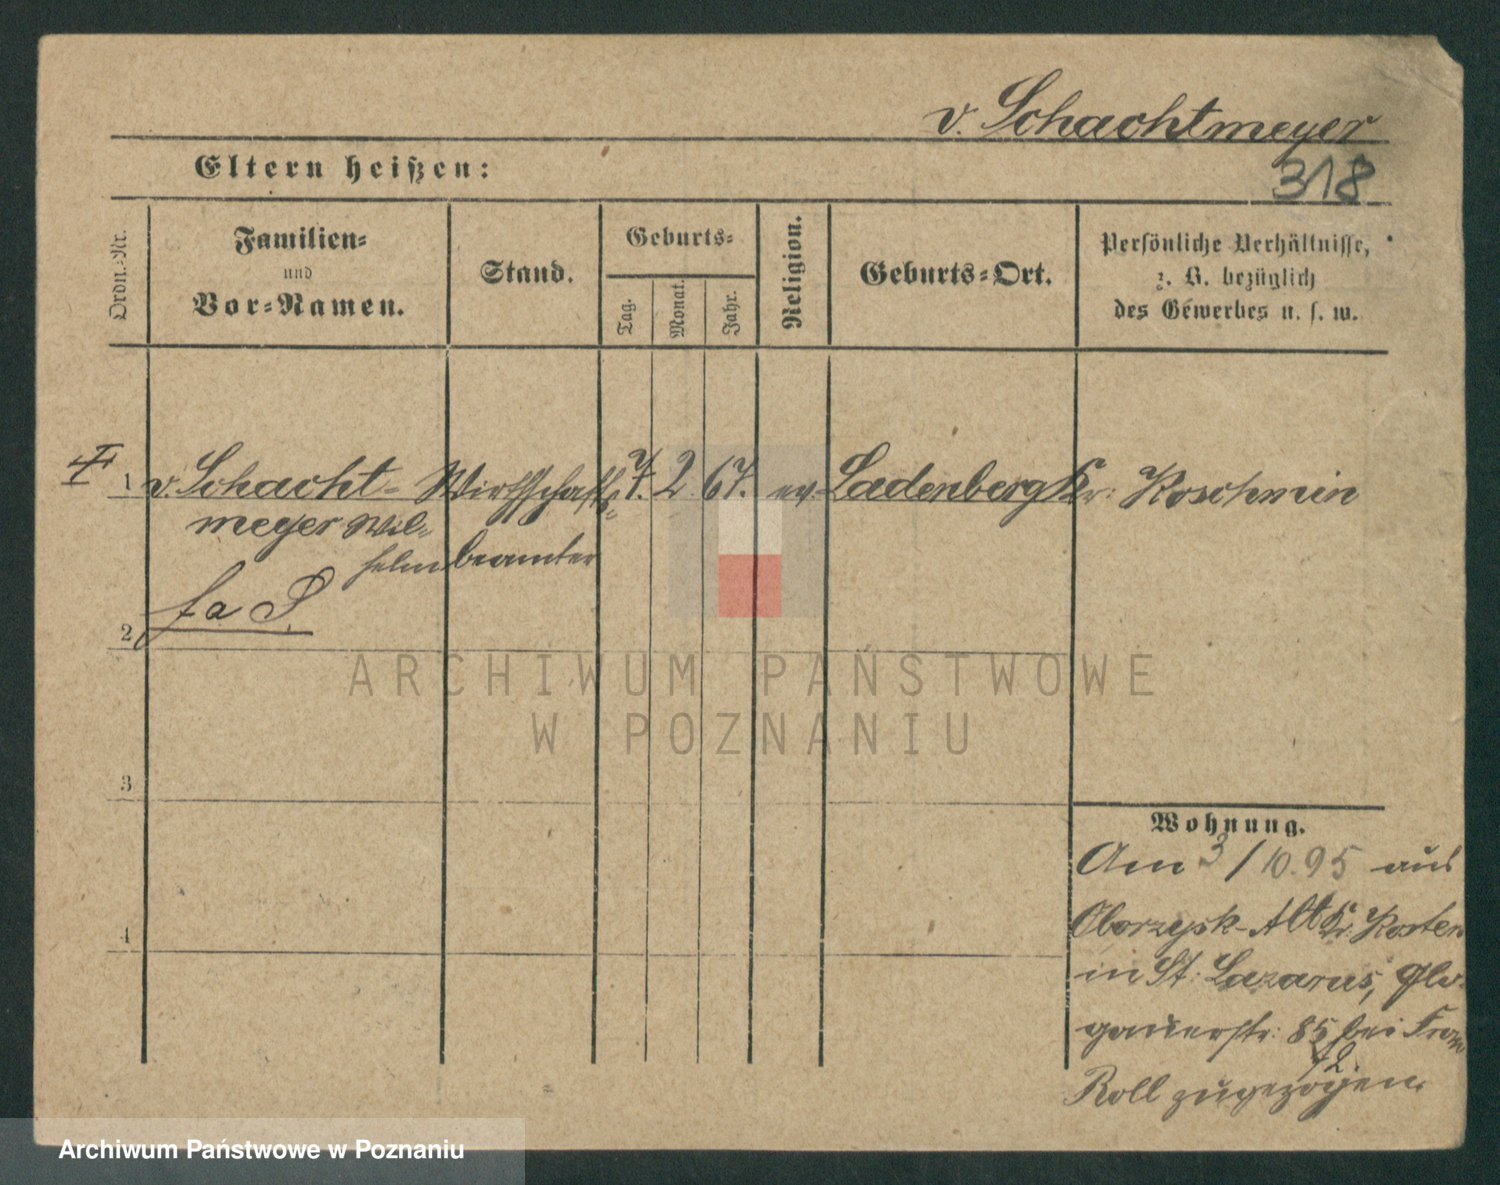 v. Schachtmeyer
318
Eltern heißen:
Ordn.-Nr.
Familien-
und
Vor-Namen.
Stand.
Geburts-
Tag.
Monat.
Jahr.
Religion.
Geburts-Ort.
Persönliche Verhältnisse,
z. B. bezüglich
des Gewerbes u. s. w.
1 v. Schacht- Wirthschafts- 7. 2. 67. ev. Ladenberg Kr. Koschmin
meyer Wil-
helm beamter
2
3
4
Wohnung.
Am 3/10.95 aus
Oborzysk-Alt Kr. Kosten
in St. Lazarus, Glo-
gauerstr. 85 bei Frau
Roll zugezogen.
ARCHIWUM PAŃSTWOWE
W POZNANIU
Archiwum Państwowe w Poznaniu